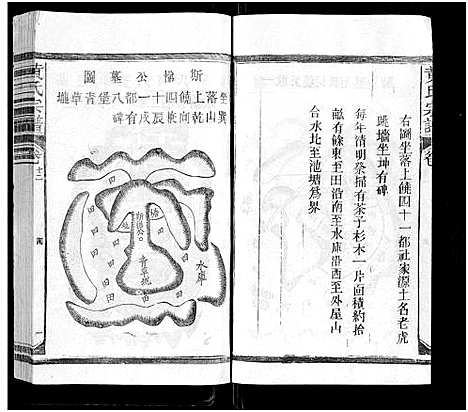 黃氏宗譜
右圖坐落上饒四十一都社家源土名老虎
跳墻坐坤有碑
每年清明祭掃有茶子杉木一片面積約拾
畝有餘東至田沿南至水庫沿西至外屋山
合水北至池塘為界
斯悌公墓圖
坐落上饒四十一都八堡青草壠
巽山乾向兼辰戌有碑
水庫
青草壠
田
田
田
田
田
田
田
黃氏宗譜